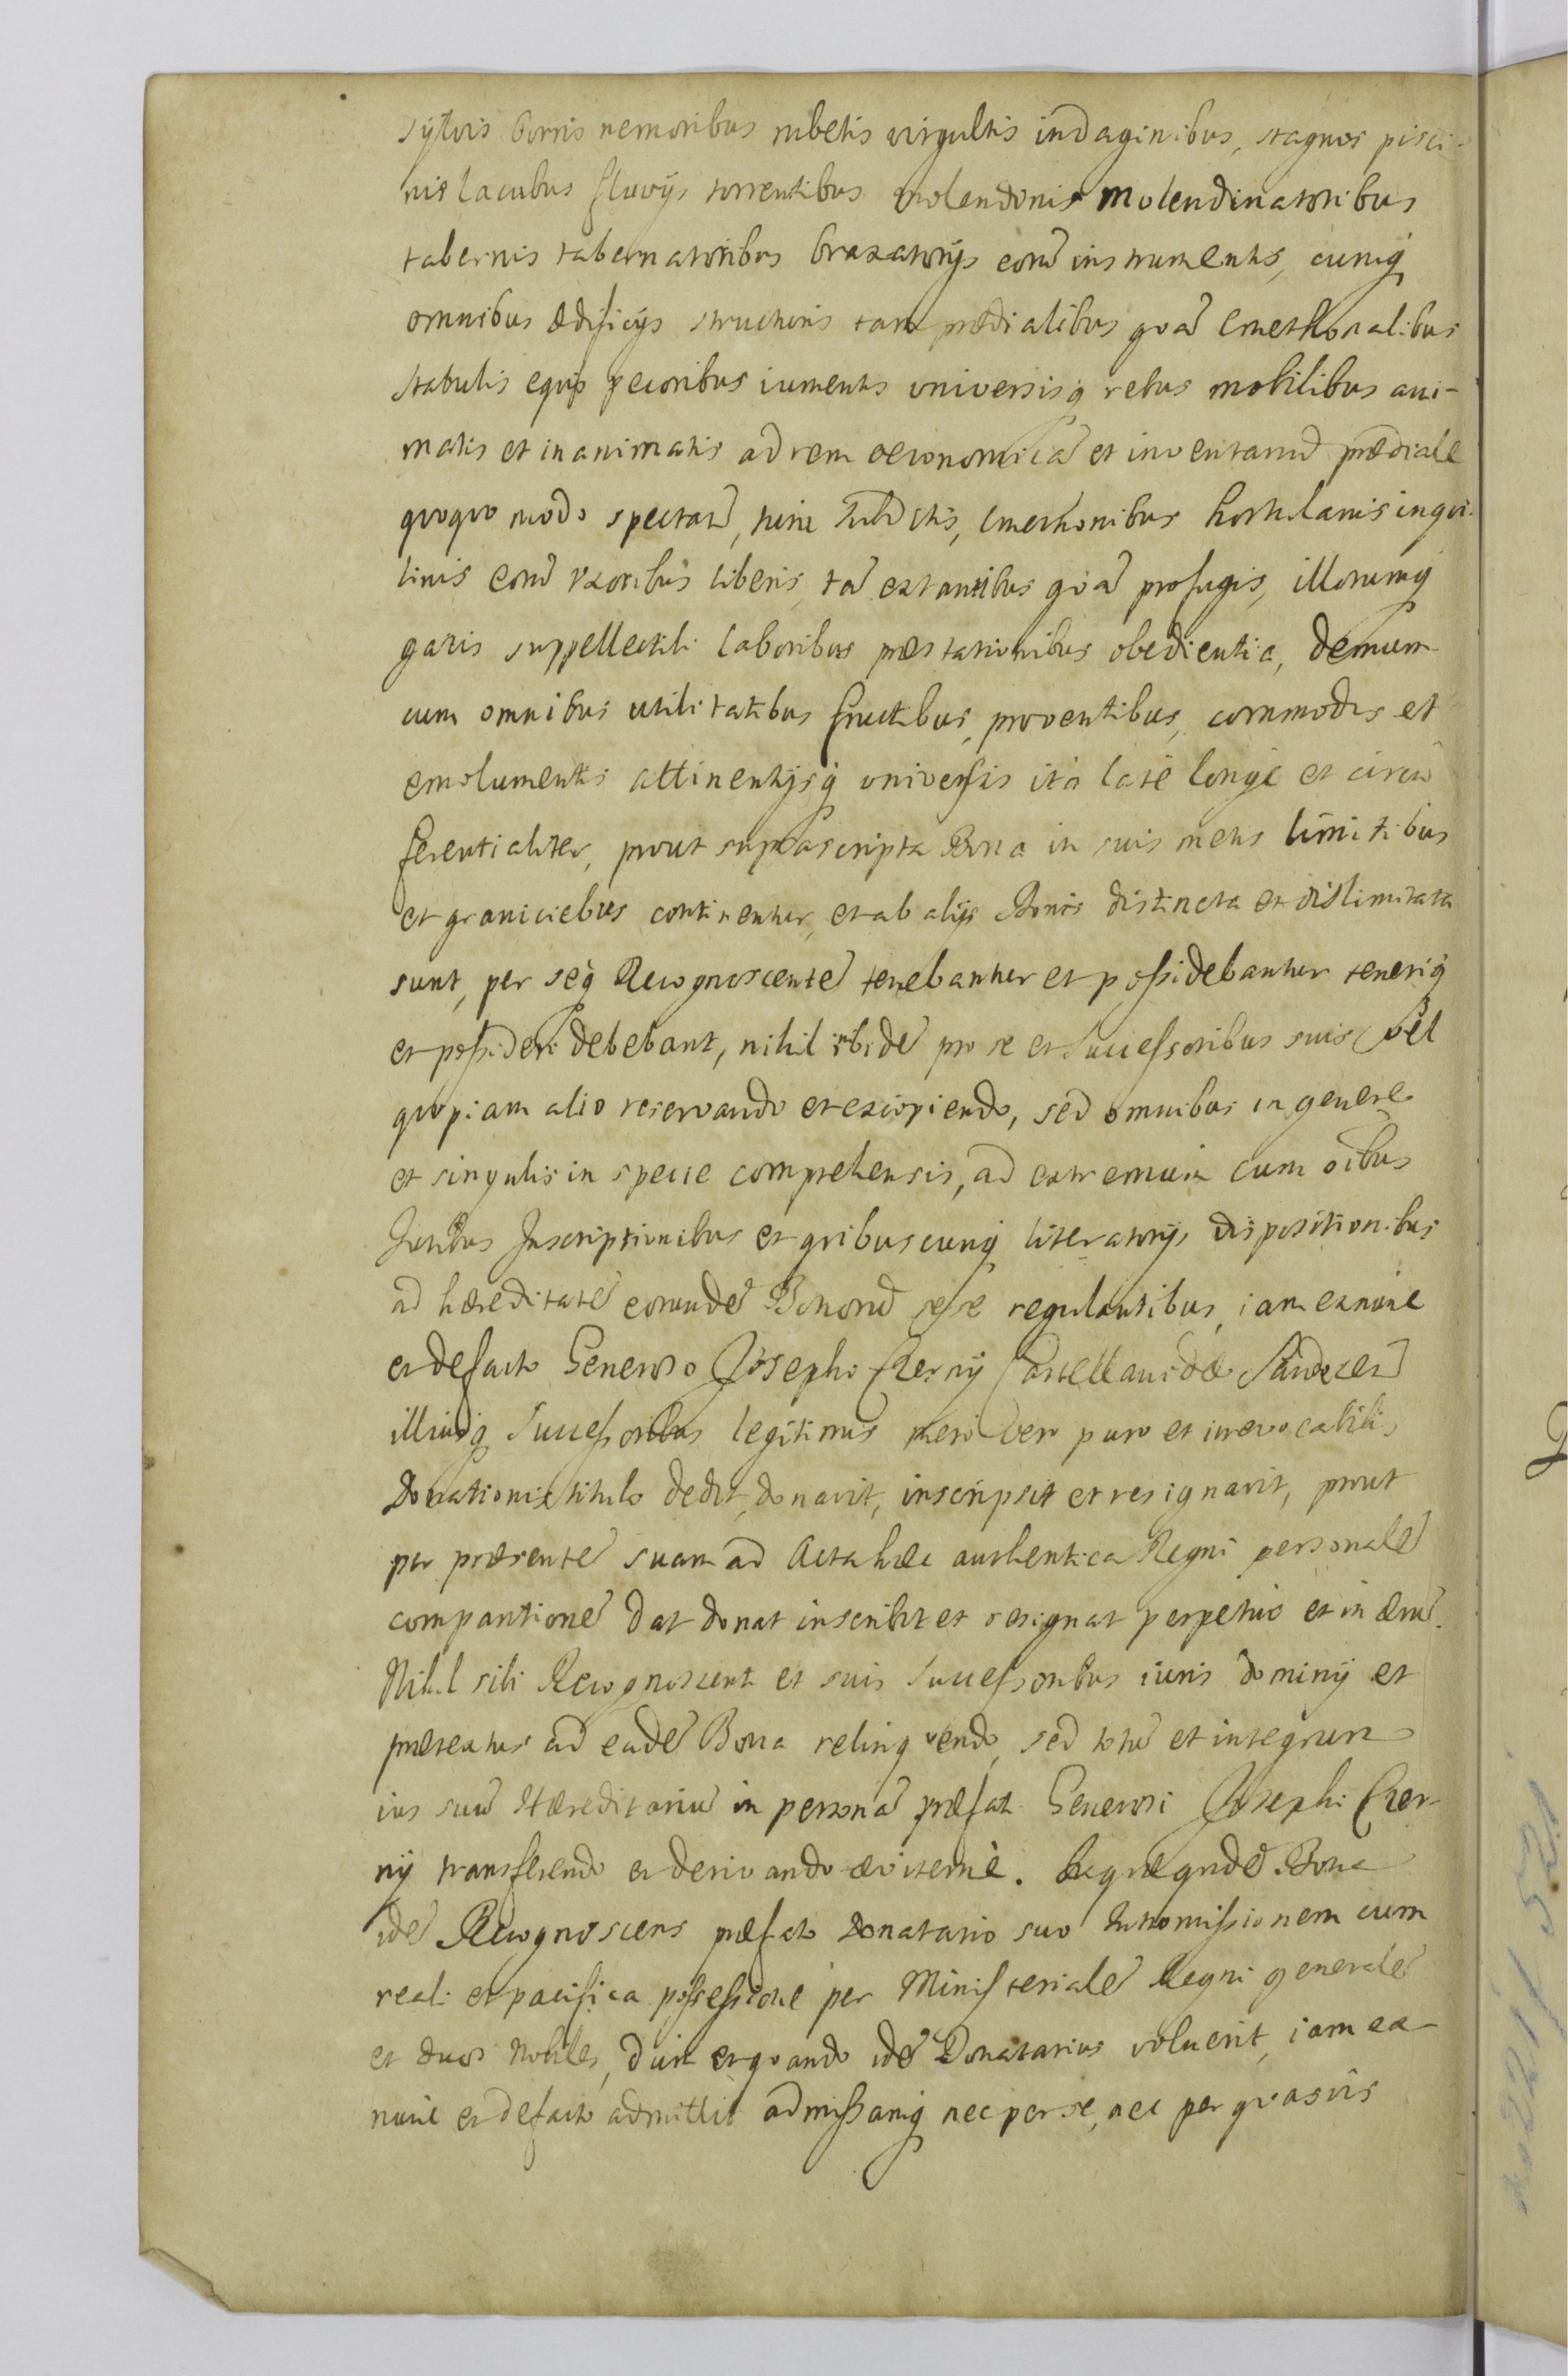 sylvis borris nemoribus rubetis virgultis indaginibus, stagnis pisci-
nis lacubus fluvijs torrentibus molendinis molendinatoribus
tabernis tabernatoribus braxatorijs eorũ instrumentis, cumq
omnibus ædificijs structuris tam prædialibus quã cmethonalibus
stabulis equis pecoribus iumentis universisq rebus mobilibus ani-
matis et inanimatis ad rem oeconomicã et inventariũ prædiale
quoquo modo spectatũ, tum subditis, cmethonibus hortulanis inqui-
linis eorũ uxoribus liberis, tã extantibus quã profugis, illorumq
gazis suppellectili laboribus præstationibus obedientia, demum
cum omnibus utilitatibus fructibus, proventibus, commodis et
emolumentis attinentijsq universis ita late longe et circũ
ferentialiter, prout suprascripta Bona in suis metis limitibus
et graniciebus continentur, et ab alijs Bonis distincta et dislimitata
sunt, per seq Recognoscentẽ tenebantur et possidebantur teneriq
et possideri debebant, nihil ibidẽ pro se et Successoribus suis vel
quopiam alio reservando et excipiendo, sed omnibus in genere
et singulis in specie comprehensis, ad extremum cum oibus
Juribus Inscriptionibus et quibuscunq literatorijs dispositionibus
ad hæreditatẽ eorundẽ Bonorũ sese regulantibus, iam ex nunc
et de facto Generoso Josepho Czerny Castellanidæ Sandecen
illiusq Successoribus legitimis mero vero puro et irrevocabilis
Donationis titulo dedit, donavit, inscripsit et resignavit, prout
per præsentẽ suam ad Acta hæc authentica Regni personalẽ
comparitionẽ dat donat inscribit et resignat perpetuo et in ævũ.
Nihil sibi Recognoscenti et suis Successoribus iuris dominij et
prætextus ad eadẽ Bona relinquendo, sed totũ et integrum
ius suũ Hæreditariũ in personã præfati Generosi Josephi Czer-
ny transferendo et derivando æviternè. In quæquidẽ Bona
idẽ Recognoscens præfato Donatario suo Intromissionem cum
reali et pacifica possessione per Ministerialẽ Regni generalẽ
et duos Nobiles, dum et quando idẽ Donatarius voluerit, iam ex
nunc et de facto admittit admissamq nec per se, nec per quasvis